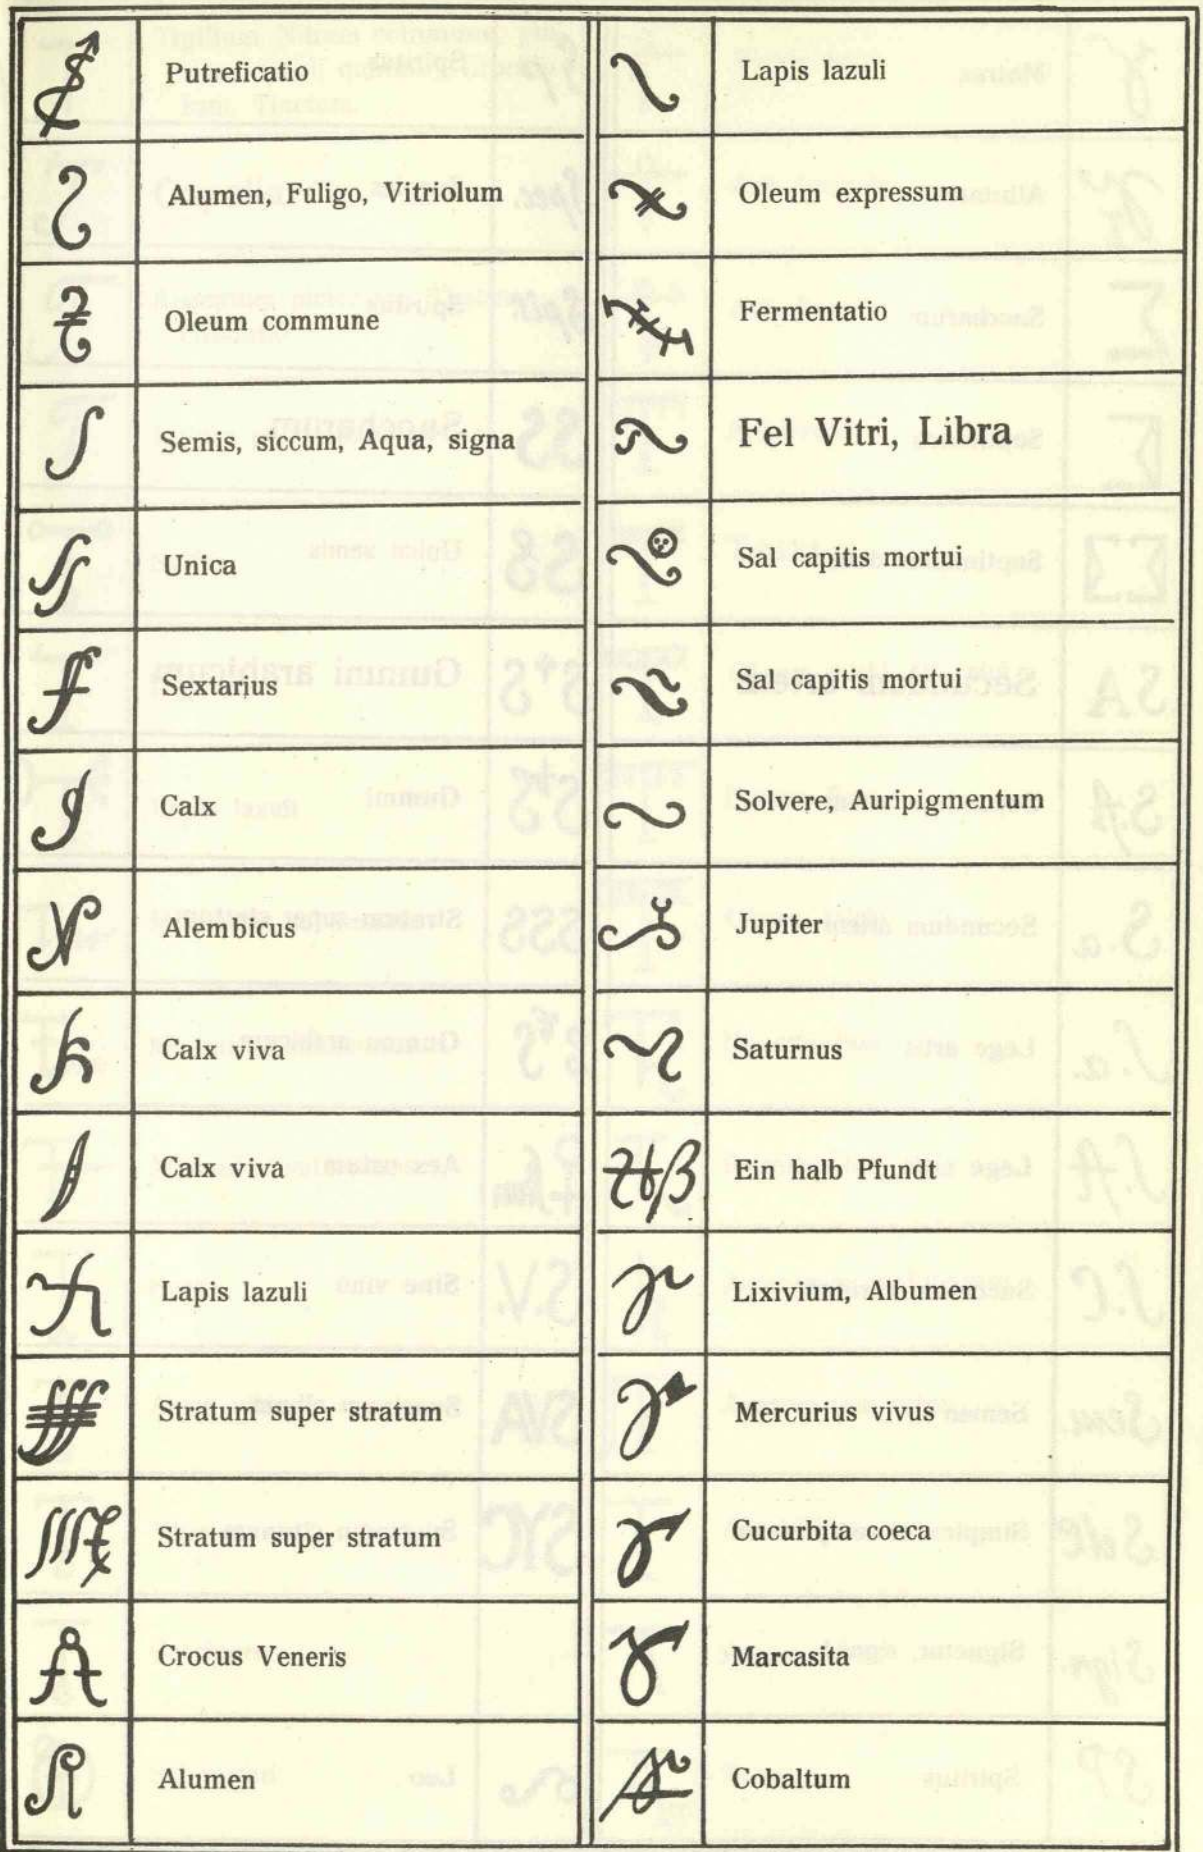 Putreficatio
Alumen, Fuligo, Vitriolum
Oleum commune
Semis, siccum, Aqua, signa
Unica
Sextarius
Calx
Alembicus
Calx viva
Calx viva
Lapis lazuli
Stratum super stratum
Stratum super stratum
Crocus Veneris
Alumen
Lapis lazuli
Oleum expressum
Fermentatio
Fel Vitri, Libra
Sal capitis mortui
Sal capitis mortui
Solvere, Auripigmentum
Jupiter
Saturnus
Ein halb Pfundt
Lixivium, Albumen
Mercurius vivus
Cucurbita coeca
Marcasita
Cobaltum